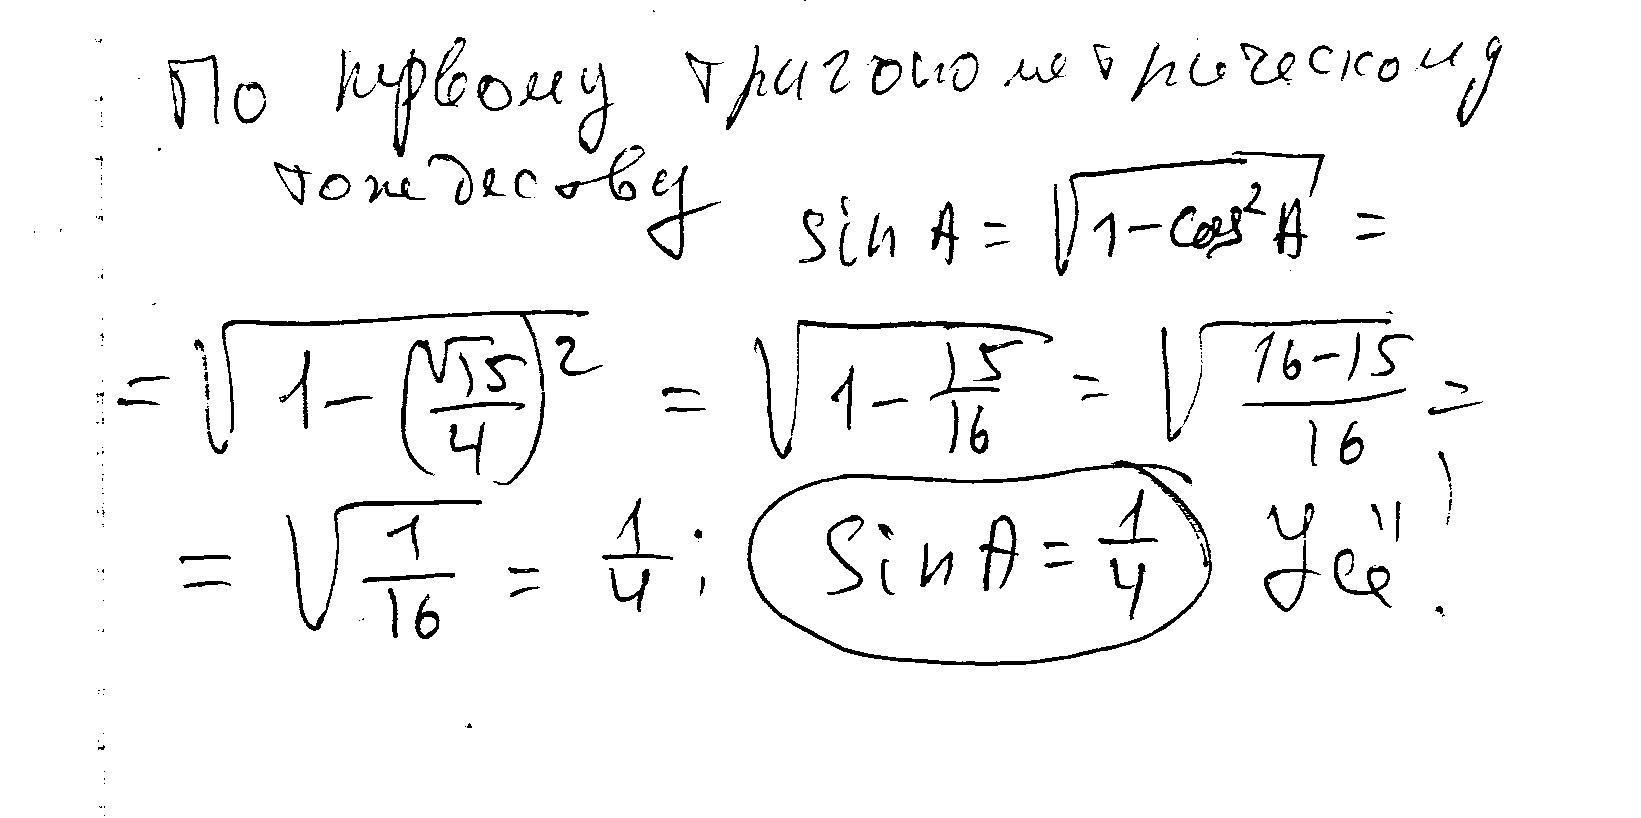 По первому тригонометрическому
тождеству sin A = √(1-cos²A) =
= √(1-(√15/4)²) = √(1-15/16) = √((16-15)/16) =
= √(1/16) = 1/4; sin A = 1/4 Усё!